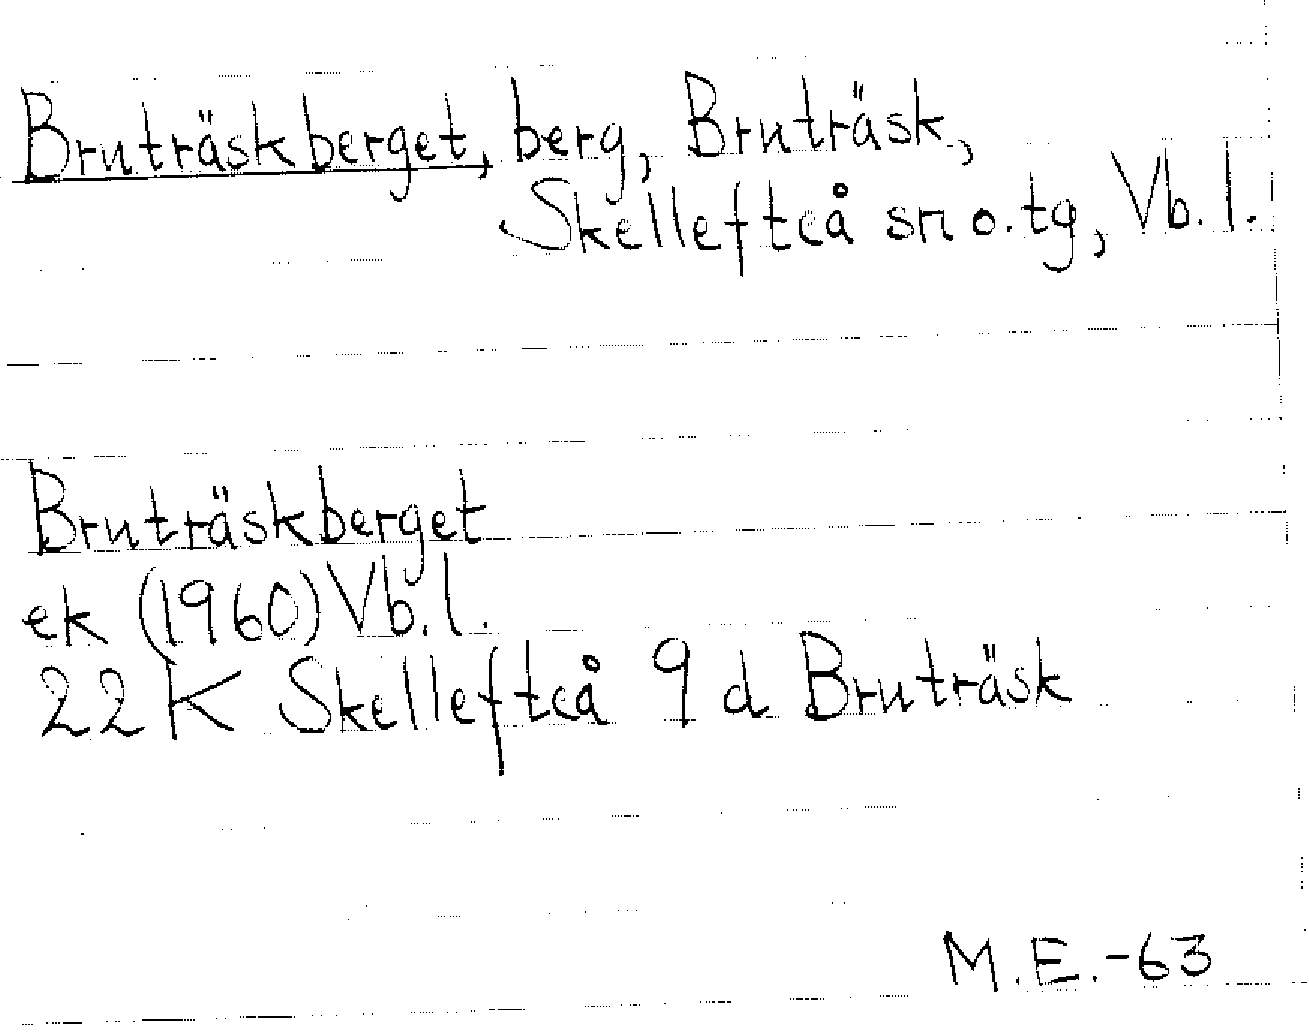 Bruträskberget, berg, Bruträsk,
Skellefteå sn o. tg, Vb. l.
Bruträskberget
ek (1960) Vb. l.
22 K Skellefteå 9 d Bruträsk
M.E.-63